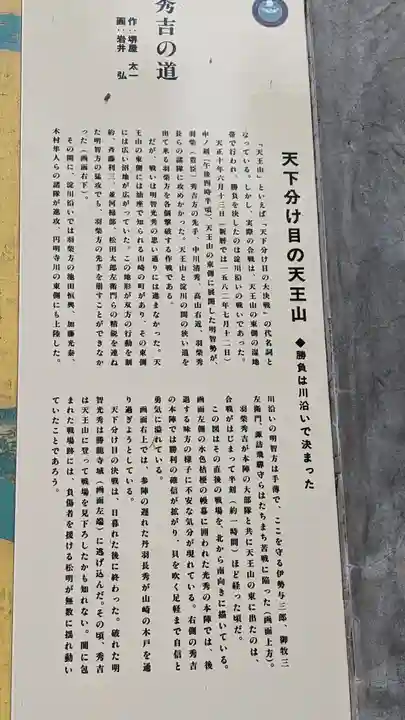 秀吉の道
作：堺屋 太一
画：岩井 弘
天下分け目の天王山 ◆勝負は川沿いで決まった
「天王山」といえば「天下分け目の大決戦」の代名詞と
なっている。しかし、実際の合戦は、天王山の東側の湿地
帯で行われ、勝負を決したのは淀川沿いの戦いであった。
天正十年六月十三日（新暦では一五八二年七月十二日）
申ノ刻（午後四時半頃）、天王山の東側に展開した明智勢が、
羽柴（豊臣）秀吉方の先手、中川清秀、高山右近、羽柴秀
長らの諸隊に攻めかかった。天王山と淀川の間の狭い道を
出て来る羽柴方を各個撃破する作戦である。
だが、戦いは明智光秀の思い通りには進まなかった。天
王山の東側には油座で知られる山崎の町があり、その東側
には広い沼地が広がっていた。この地形が双方の行動を制
約、斉藤利三、並河掃部、松田太郎左衛門らの精鋭を連ね
た明智方の猛攻でも、羽柴方の先手を崩すことができなか
った（画面右下）。
その間に、淀川沿いでは羽柴方の池田恒興、加藤光泰、
木村隼人らの諸隊が進攻、円明寺川の東側にも上陸した。
川沿いの明智方は手薄で、ここを守る伊勢与三郎、御牧三
左衛門、諏訪飛騨守らはたちまち苦戦に陥った（画面上方）。
羽柴秀吉が本陣の大部隊と共に天王山の東に出たのは、
合戦がはじまって半刻（約一時間）ほど経った頃だ。
この図はその直後の戦場を、北から南向きに描いている。
画面左側の水色桔梗の幔幕に囲われた光秀の本陣では、後
退する味方の様子に不安な気分が現れている。右側の秀吉
の本陣では勝利の確信が拡がり、貝を吹く足軽まで自信と
勇気に溢れている。
画面右上では、参陣の遅れた丹羽長秀が山崎の木戸を通
り過ぎようとしている。
天下分け目の決戦は、日暮れた後に終わった。破れた明
智光秀は勝龍寺城（画面左端）に逃げ込んだ。その頃、秀吉
は天王山に登って戦場を見下ろしたかも知れない。闇に包
まれた戦場跡には、負傷者を援ける松明が無数に揺れ動い
ていたことであろう。